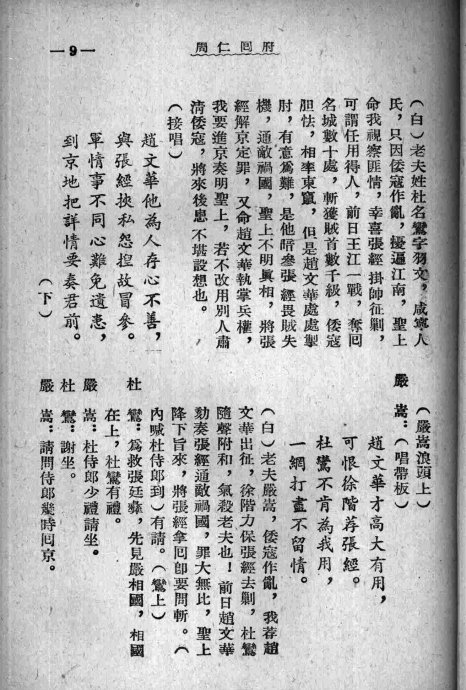 周仁囘府
—9—
(白)老夫姓杜名鸞字羽文,咸寧人
氏,只因倭寇作亂,擾遍江南,聖上
命我視察匪情,幸喜張經掛帥征剿,
可謂任用得人,前日王江一戰,奪囘
名城數十處,斬獲賊首數千級,倭寇
胆怯,相率東竄,但是趙文華處處掣
肘,有意爲難,是他暗參張經畏賊失
機,通敵禍國,聖上不明眞相,將張
經解京定罪,又命趙文華執掌兵權,
我要進京奏明聖上,若不改用別人肅
清倭寇,將來後患不堪設想也。
(接唱)
趙文華他為人存心不善,
與張經挾私怨捏故冒參。
軍情事不同心難免遺患,
到京地把詳情要奏君前。
(下)
(嚴嵩浪頭上)
嚴 嵩:(唱帶板)
趙文華才高大有用,
可恨徐階荐張經。
杜鸞不肯為我用,
一網打盡不留情。
(白)老夫嚴嵩,倭寇作亂,我荐趙
文華出征,徐階力保張經去剿,杜鸞
隨聲附和,氣殺老夫也!前日趙文華
劾奏張經通敵禍國,罪大無比,聖上
降下旨來,將張經拿囘卽要問斬。(
內喊杜侍郎到)有請。(鸞上)
杜 鸞:爲救張廷彝,先見嚴相國,相國
在上,杜鸞有禮。
嚴 嵩:杜侍郎少禮請坐。
杜 鸞:謝坐。
嚴 嵩:請問侍郎幾時囘京。